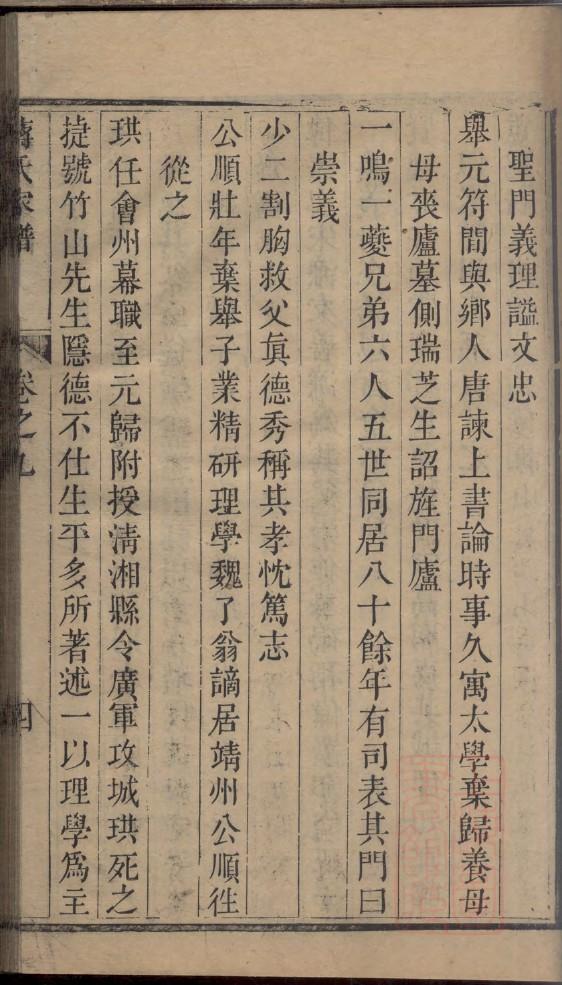 聖門義理謚文忠
舉元符間與鄉人唐諫上書論時事久寓太學棄歸養母
母喪廬墓側瑞芝生詔旌門廬
一鳴一夔兄弟六人五世同居八十餘年有司表其門曰
崇義
少二割胸救父眞德秀稱其孝忱篤志
公順壯年棄舉子業精研理學魏了翁謫居靖州公順徃
從之
珙任會州幕職至元歸附授清湘縣令廣軍攻城珙死之
捷號竹山先生隱德不仕生平多所著述一以理學爲主
蔣氏家譜 卷之九 四